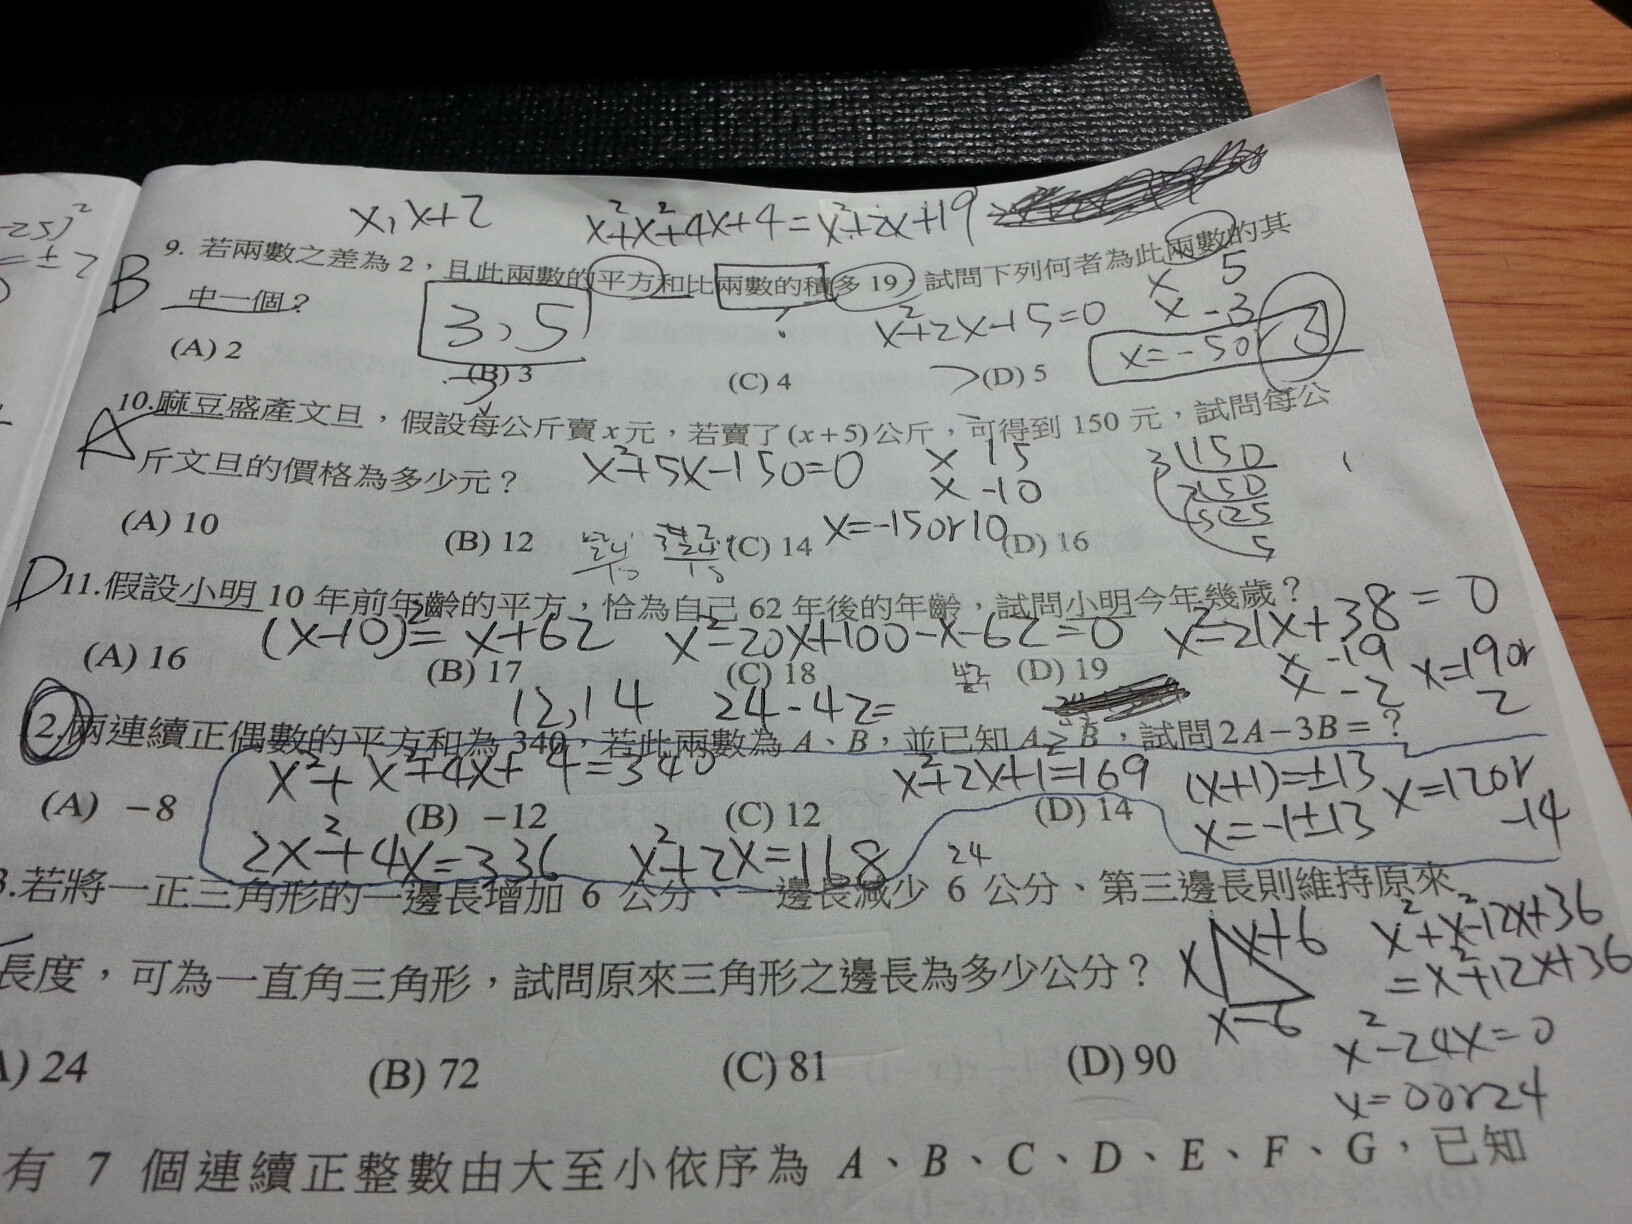 -25)²
=±2
x,x+2 x²+x²+4x+4=x²+2x+19
B 9. 若兩數之差為 2，且此兩數的平方和比兩數的積多 19，試問下列何者為此兩數的其
中一個？ 3,5 ? x²+2x-15=0 x 5
x -3
x=-5or 3
(A) 2 (B) 3 (C) 4 (D) 5
A 10.麻豆盛產文旦，假設每公斤賣 x 元，若賣了 (x+5) 公斤，可得到 150 元，試問每公
斤文旦的價格為多少元？ x²+5x-150=0 x 15
x -10
(A) 10 (B) 12 (C) 14 x=-15or10 (D) 16
D 11.假設小明 10 年前年齡的平方，恰為自己 62 年後的年齡，試問小明今年幾歲？
(x-10)²=x+62 x²-20x+100-x-62=0 x²-21x+38=0
(A) 16 (B) 17 (C) 18 (D) 19 x -19
x -2
x=19or
2
12,14 24-42=
2.兩連續正偶數的平方和為 340，若此兩數為 A、B，並已知 A≥B，試問 2A－3B＝？
x²+x²+4x+4=340 x²+2x+1=169 (x+1)=±13 x=12or
-14
(A) －8 (B) －12 (C) 12 (D) 14 x=-1±13
2x²+4x=336 x²+2x=168
24
3.若將一正三角形的一邊長增加 6 公分、一邊長減少 6 公分、第三邊長則維持原來
長度，可為一直角三角形，試問原來三角形之邊長為多少公分？
x x+6
x-6
x²+x²-12x+36
=x²+12x+36
x²-24x=0
x=0or24
A) 24 (B) 72 (C) 81 (D) 90
有 7 個連續正整數由大至小依序為 A、B、C、D、E、F、G，已知